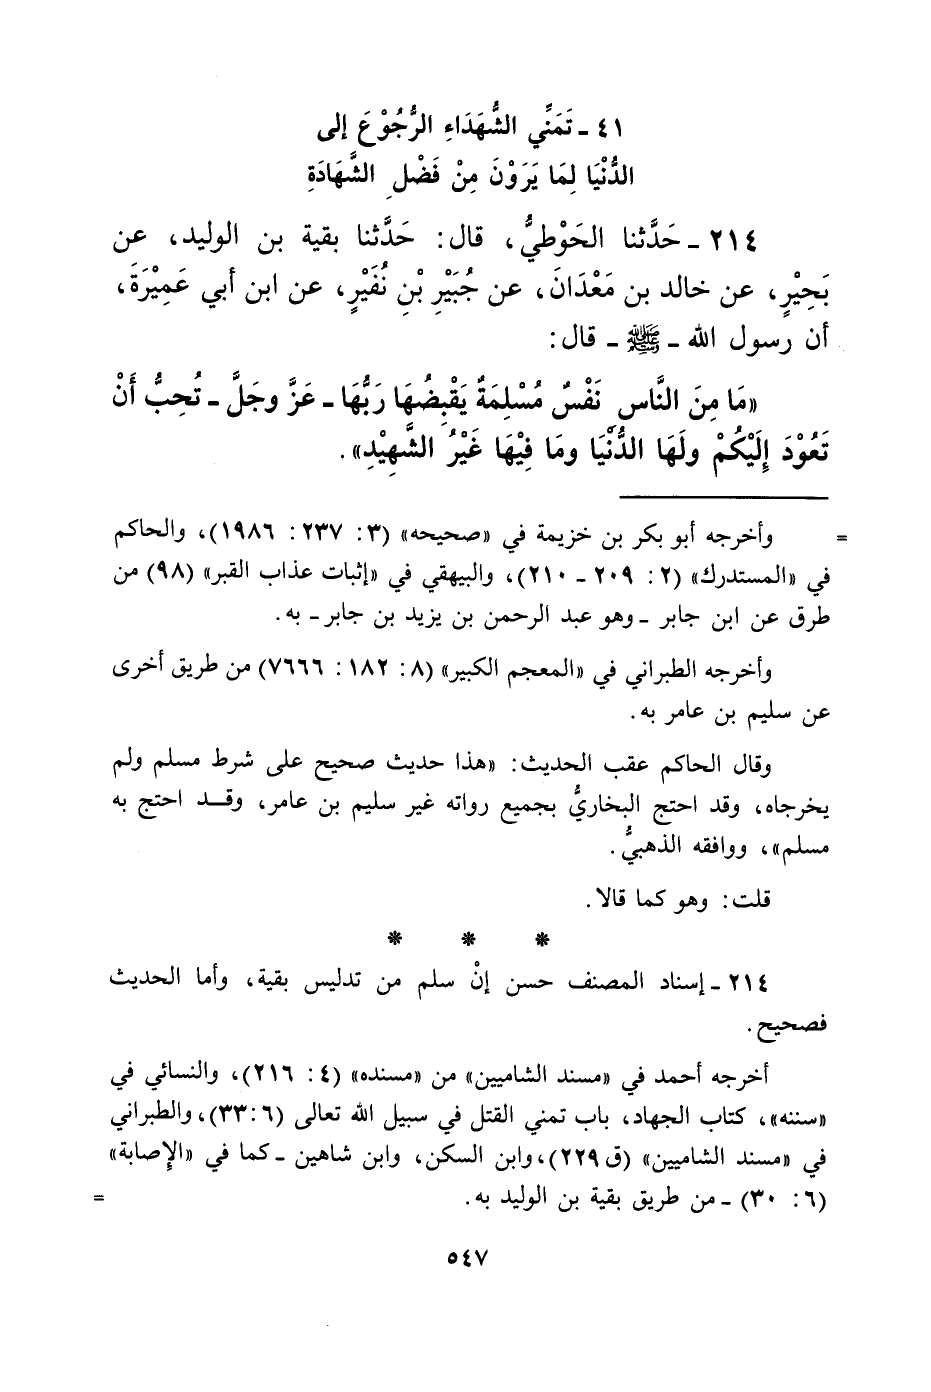 ٤١ ـ تَمَنِّي الشُّهَدَاءِ الرُّجُوْعَ إلى
الدُّنْيَا لِمَا يَرَوْنَ مِنْ فَضْلِ الشَّهَادَةِ
٢١٤ ـ حَدَّثنا الحَوْطيُّ، قال: حَدَّثنا بقية بن الوليد، عن
بَحِيْرٍ، عن خالد بن مَعْدَانَ، عن جُبَيْرِ بْنِ نُفَيْرٍ، عن ابن أبي عَمِيْرَةَ،
أن رسول الله ـ ﷺ ـ قال:
«مَا مِنَ النَّاسِ نَفْسٌ مُسْلِمَةٌ يَقْبِضُهَا رَبُّهَا ـ عَزَّ وجَلَّ ـ تُحِبُّ أَنْ
تَعُوْدَ إِلَيْكُمْ ولَهَا الدُّنْيَا ومَا فِيْهَا غَيْرُ الشَّهِيْدِ».
= وأخرجه أبو بكر بن خزيمة في «صحيحه» (٣: ٢٣٧: ١٩٨٦)، والحاكم
في «المستدرك» (٢: ٢٠٩ ـ ٢١٠)، والبيهقي في «إثبات عذاب القبر» (٩٨) من
طرق عن ابن جابر ـ وهو عبد الرحمن بن يزيد بن جابر ـ به.
وأخرجه الطبراني في «المعجم الكبير» (٨: ١٨٢: ٧٦٦٦) من طريق أخرى
عن سليم بن عامر به.
وقال الحاكم عقب الحديث: «هذا حديث صحيح على شرط مسلم ولم
يخرجاه، وقد احتج البخاريُّ بجميع رواته غير سليم بن عامر، وقد احتج به
مسلم»، ووافقه الذهبيُّ.
قلت: وهو كما قالا.
* * *
٢١٤ ـ إسناد المصنف حسن إنْ سلم من تدليس بقية، وأما الحديث
فصحيح.
أخرجه أحمد في «مسند الشاميين» من «مسنده» (٤: ٢١٦)، والنسائي في
«سننه»، كتاب الجهاد، باب تمني القتل في سبيل الله تعالى (٦: ٣٣)، والطبراني
في «مسند الشاميين» (ق ٢٢٩)، وابن السكن، وابن شاهين ـ كما في «الإصابة»
(٦: ٣٠) ـ من طريق بقية بن الوليد به. =
٥٤٧